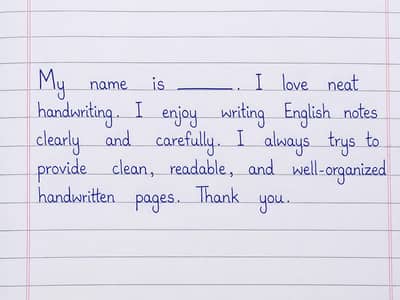 My name is ______. I love neat
handwriting. I enjoy writing English notes
clearly and carefully. I always trys to
provide clean, readable, and well-organized
handwritten pages. Thank you.